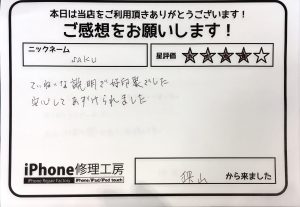 本日は当店をご利用頂きありがとうございます！
ご感想をお願いします！
ニックネーム
saku
星評価
ていねいな説明で好印象でした
安心してあずけられました
iPhone修理工房
iPhone Repair Factory
iPhone/iPad/iPod touch
狭山
から来ました